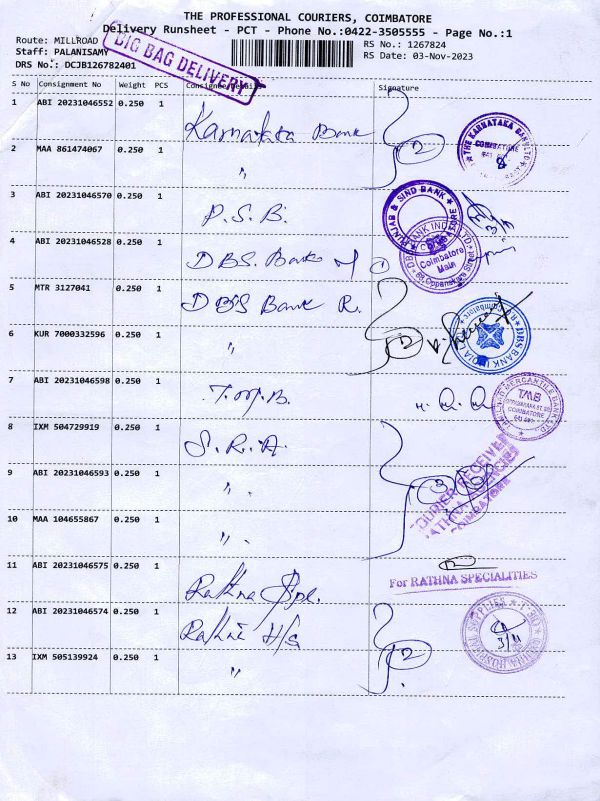 THE PROFESSIONAL COURIERS, COIMBATORE
Delivery Runsheet - PCT - Phone No.:0422-3505555 - Page No.:1
Route: MILLROAD
RS No.: 1267824
Staff: PALANISAMY
RS Date: 03-Nov-2023
DRS No.: DCJB126782401
BIG BAG DELIVERY
S No Consignment No Weight PCS Consignee Details Signature
1 ABI 20231046552 0.250 1 Karnataka Bank
THE KARNATAKA BANK LTD
COIMBATORE
2 MAA 861474067 0.250 1 "
2
3 ABI 20231046570 0.250 1 P.S.B.
PUNJAB & SIND BANK
4 ABI 20231046528 0.250 1 DBS. Bank
DBS BANK INDIA LTD
Coimbatore
Main
5 MTR 3127041 0.250 1 DBS Bank R.
DBS BANK INDIA LTD
6 KUR 7000332596 0.250 1 "
2
7 ABI 20231046598 0.250 1 T.M.B.
MERCANTILE BANK LTD
TMB
COIMBATORE
8 IXM 504729919 0.250 1 S.R.A.
9 ABI 20231046593 0.250 1 "
3
COURIER RECEIVED
RATHNA AGENCIES
COIMBATORE
10 MAA 104655867 0.250 1 "
11 ABI 20231046575 0.250 1 Rathna Spl.
For RATHNA SPECIALITIES
12 ABI 20231046574 0.250 1
3/11
13 IXM 505139924 0.250 1 "
2